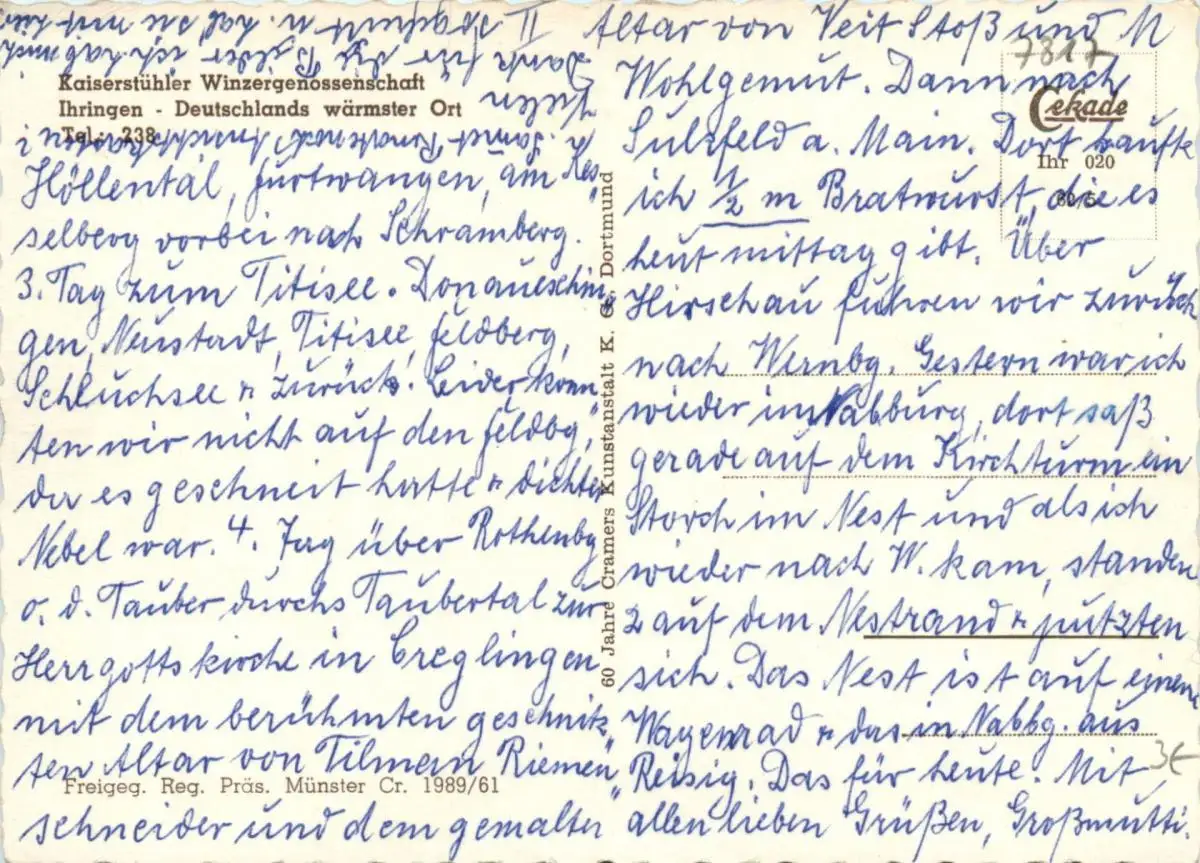 II
Kaiserstühler Winzergenossenschaft
Ihringen - Deutschlands wärmster Ort
Tel.: 238
Höllental, Furtwangen, am Kes„
selberg vorbei nach Schramberg.
3. Tag zum Titisee. Donaueschin„
gen, Neustadt, Titisee, Feldberg,
Schluchsee u zurück. Leider konn„
ten wir nicht auf den Feldbg,
da es geschneit hatte u dichter
Nebel war. 4. Tag über Rothenbg
o. d. Tauber durchs Taubertal zur
Herrgottskirche in Creglingen
mit dem berühmten geschnitz„
ten Altar von Tilman Riemen„
Freigeg. Reg. Präs. Münster Cr. 1989/61
schneider und dem gemalten
60 Jahre Cramers Kunstanstalt K. G., Dortmund
Altar von Veit Stoß und M
7817
Wohlgemut. Dann nach
Cekade
Sulzfeld a. Main. Dort kaufte
Ihr 020
ich 1/2 m Bratwurst, die es
heut mittag gibt. Über
Hirschau fuhren wir zurück
nach Wernbg. Gestern war ich
wieder in Nabburg, dort saß
gerade auf dem Kirchturm ein
Storch im Nest und als ich
wieder nach W. kam, standen
2 auf dem Nestrand u putzten
sich. Das Nest ist auf einem
Wagenrad u das in Nabbg. aus
Reisig. Das für heute. Mit
3€
allen lieben Grüßen, Großmutti.
Dank für die Bilder ich hab mich